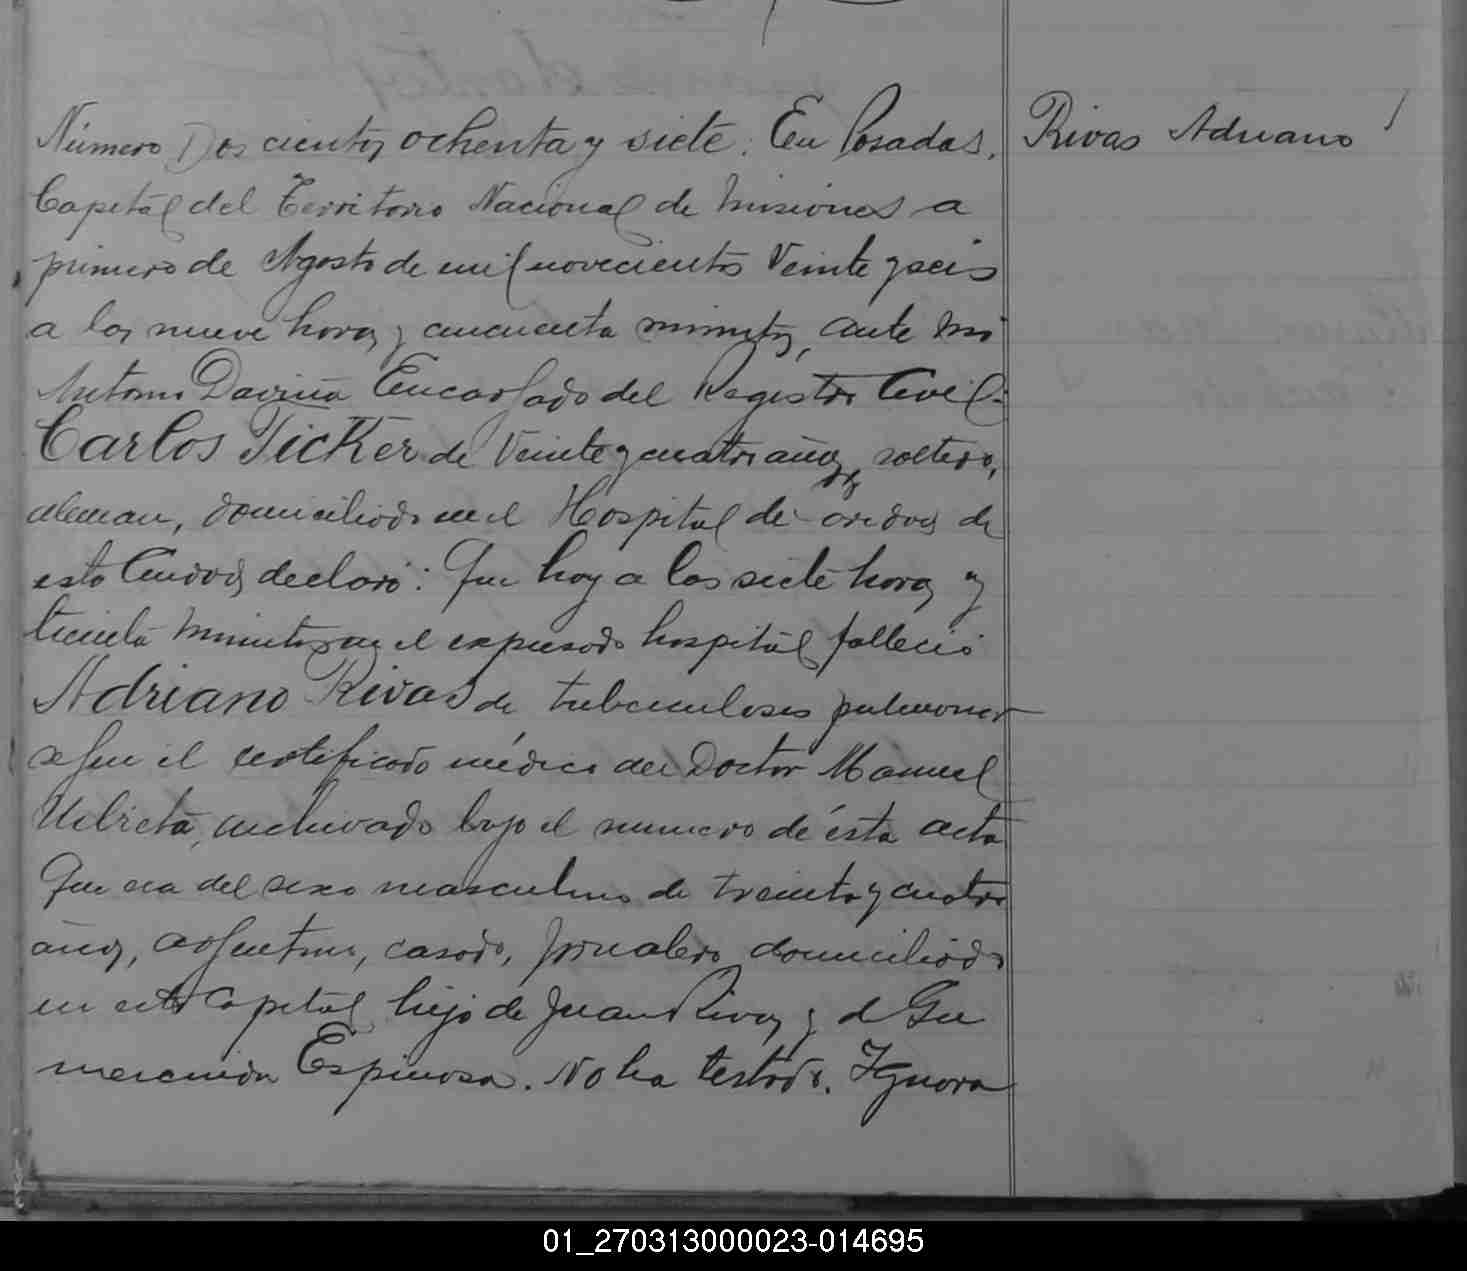 Número Doscientos ochenta y siete. En Posadas,
Rivas Adriano
Capital del Territorio Nacional de Misiones a
primero de Agosto de mil novecientos Veinte y seis
a las nueve horas y cincuenta minutos, ante mi
Antonio Daviña Encargado del Registro Civil:
Carlos Ticker de Veinte y cuatro años, soltero,
aleman, domiciliado en el Hospital de de
esta Ciudad, declaró: Que hoy a las siete horas y
treinta minutos en el expresado hospital falleció
Adriano Rivas de tuberculosis pulmonar
segun el certificado médico del Doctor Manuel
archivado bajo el numero de ésta acta
Que era del sexo masculino de treinta y cuatro
años, argentino, casado, jornalero domiciliado
en esta Capital hijo de Juan Rivas y de Gu
mercinda Espinosa. No ha testado. Ignora
01_270313000023-014695